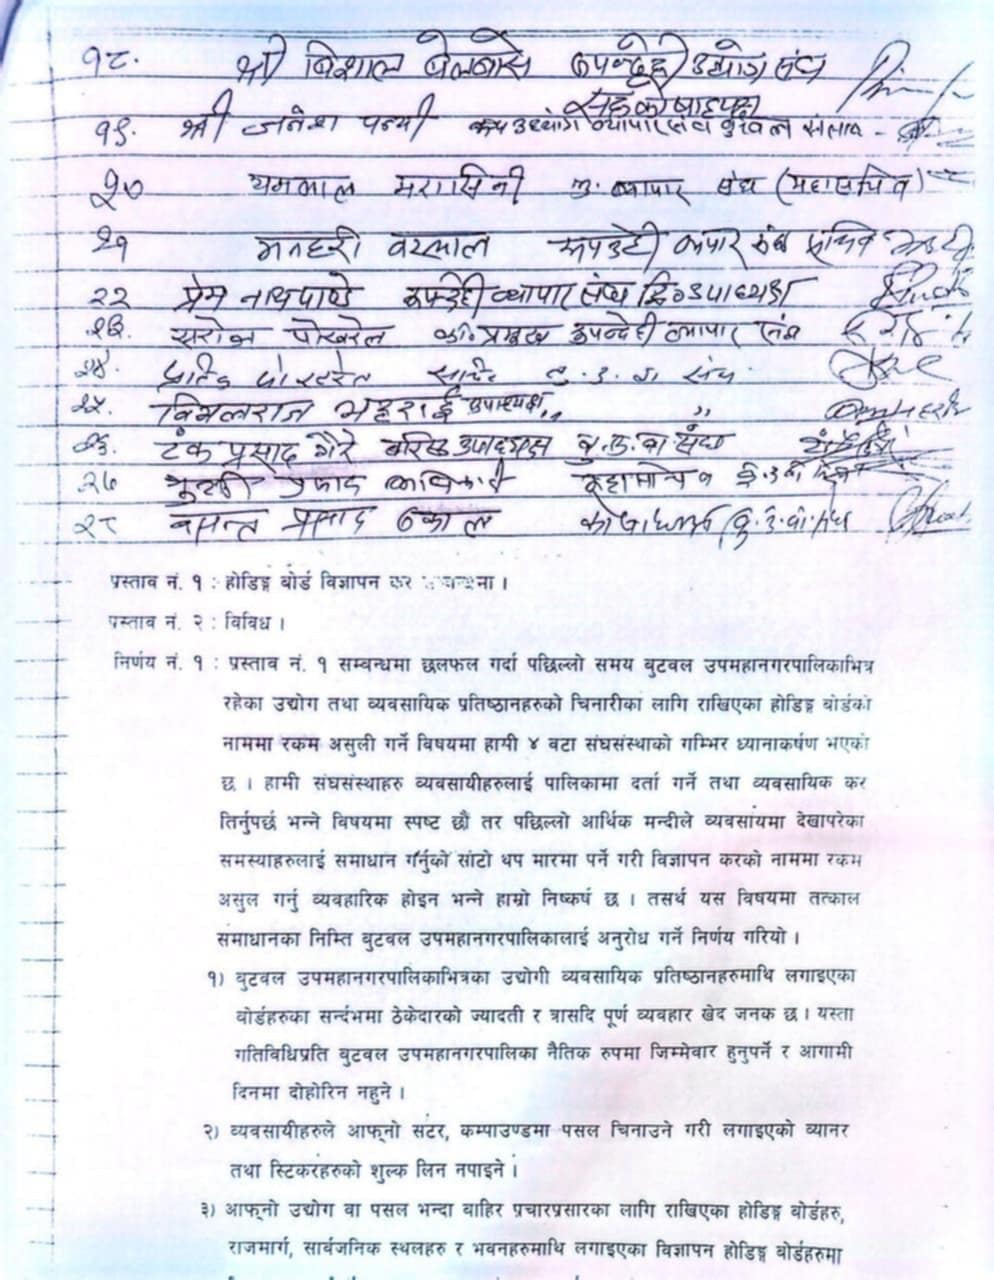 १८. श्री विशाल बेलबासे रुपन्देही उद्योग संघ
सह कोषाध्यक्ष
१९. श्री जनेश पन्थी उद्योग व्यापार संघ
२० यमलाल मरासिनी बु. व्यापार संघ (महासचिव)
२१ मनहरी रुपन्देही व्यापार संघ सचिव
२२ प्रेम नाथ पाण्डे रुपन्देही व्यापार संघ द्वि. उपाध्यक्ष
२३. सरोज पोखरेल रुपन्देही व्यापार संघ
२४. पोखरेल बु. उ. वा. संघ
२५. विमलराज भट्टराई उपाध्यक्ष ,, ,,
२६. टंक प्रसाद गैरे वरिष्ठ उपाध्यक्ष बु. उ. वा संघ
२७ प्रसाद महासचिव
२८ वसन्त प्रसाद ढकाल कोषाध्यक्ष बु. उ. वा. संघ
प्रस्ताव नं. १ : होडिङ्ग बोर्ड विज्ञापन कर
प्रस्ताव नं. २ : विविध ।
निर्णय नं. १ : प्रस्ताव नं. १ सम्बन्धमा छलफल गर्दा पछिल्लो समय बुटवल उपमहानगरपालिकाभित्र
रहेका उद्योग तथा व्यवसायिक प्रतिष्ठानहरुको चिनारीका लागि राखिएका होडिङ्ग बोर्डको
नाममा रकम असुली गर्ने विषयमा हामी ४ वटा संघसंस्थाको गम्भिर ध्यानाकर्षण भएको
छ । हामी संघसंस्थाहरु व्यवसायीहरुलाई पालिकामा दर्ता गर्ने तथा व्यवसायिक कर
तिर्नुपर्छ भन्ने विषयमा स्पष्ट छौं तर पछिल्लो आर्थिक मन्दीले व्यवसायमा देखापरेका
समस्याहरुलाई समाधान गर्नुको साटो थप मारमा पर्ने गरी विज्ञापन करको नाममा रकम
असुल गर्नु व्यवहारिक होइन भन्ने हाम्रो निष्कर्ष छ । तसर्थ यस विषयमा तत्काल
समाधानका निम्ति बुटवल उपमहानगरपालिकालाई अनुरोध गर्ने निर्णय गरियो ।
१) बुटवल उपमहानगरपालिकाभित्रका उद्योगी व्यवसायिक प्रतिष्ठानहरुमाथि लगाइएका
बोर्डहरुका सन्दर्भमा ठेकेदारको ज्यादती र त्रासदि पूर्ण व्यवहार खेद जनक छ । यस्ता
गतिविधिप्रति बुटवल उपमहानगरपालिका नैतिक रुपमा जिम्मेवार हुनुपर्ने र आगामी
दिनमा दोहोरिन नहुने ।
२) व्यवसायीहरुले आफ्नो सटर, कम्पाउण्डमा पसल चिनाउने गरी लगाइएको ब्यानर
तथा स्टिकरहरुको शुल्क लिन नपाइने ।
३) आफ्नो उद्योग वा पसल भन्दा बाहिर प्रचारप्रसारका लागि राखिएका होडिङ्ग बोर्डहरु,
राजमार्ग, सार्वजनिक स्थलहरु र भवनहरुमाथि लगाइएका विज्ञापन होडिङ्ग बोर्डहरुमा